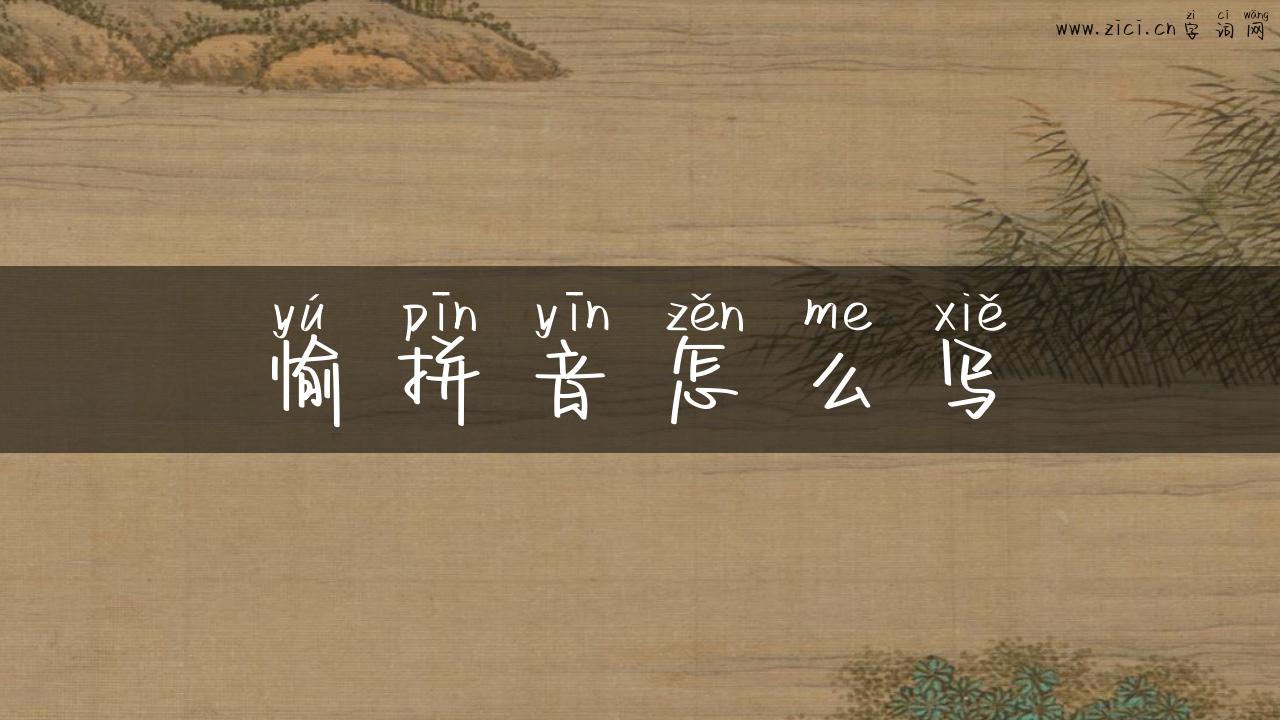 zì cí wǎng
www.zici.cn 字词网
yú pīn yīn zěn me xiě
愉拼音怎么写